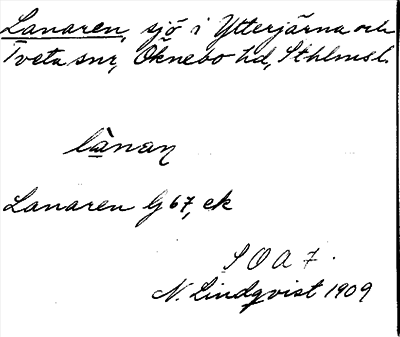 Lanaren, sjö i Ytterjärna och
Tveta snr, Öknebo hd, Sthlms l.
lànaṇ
Lanaren G 67, ek
S O A 7.
N. Lindqvist 1909